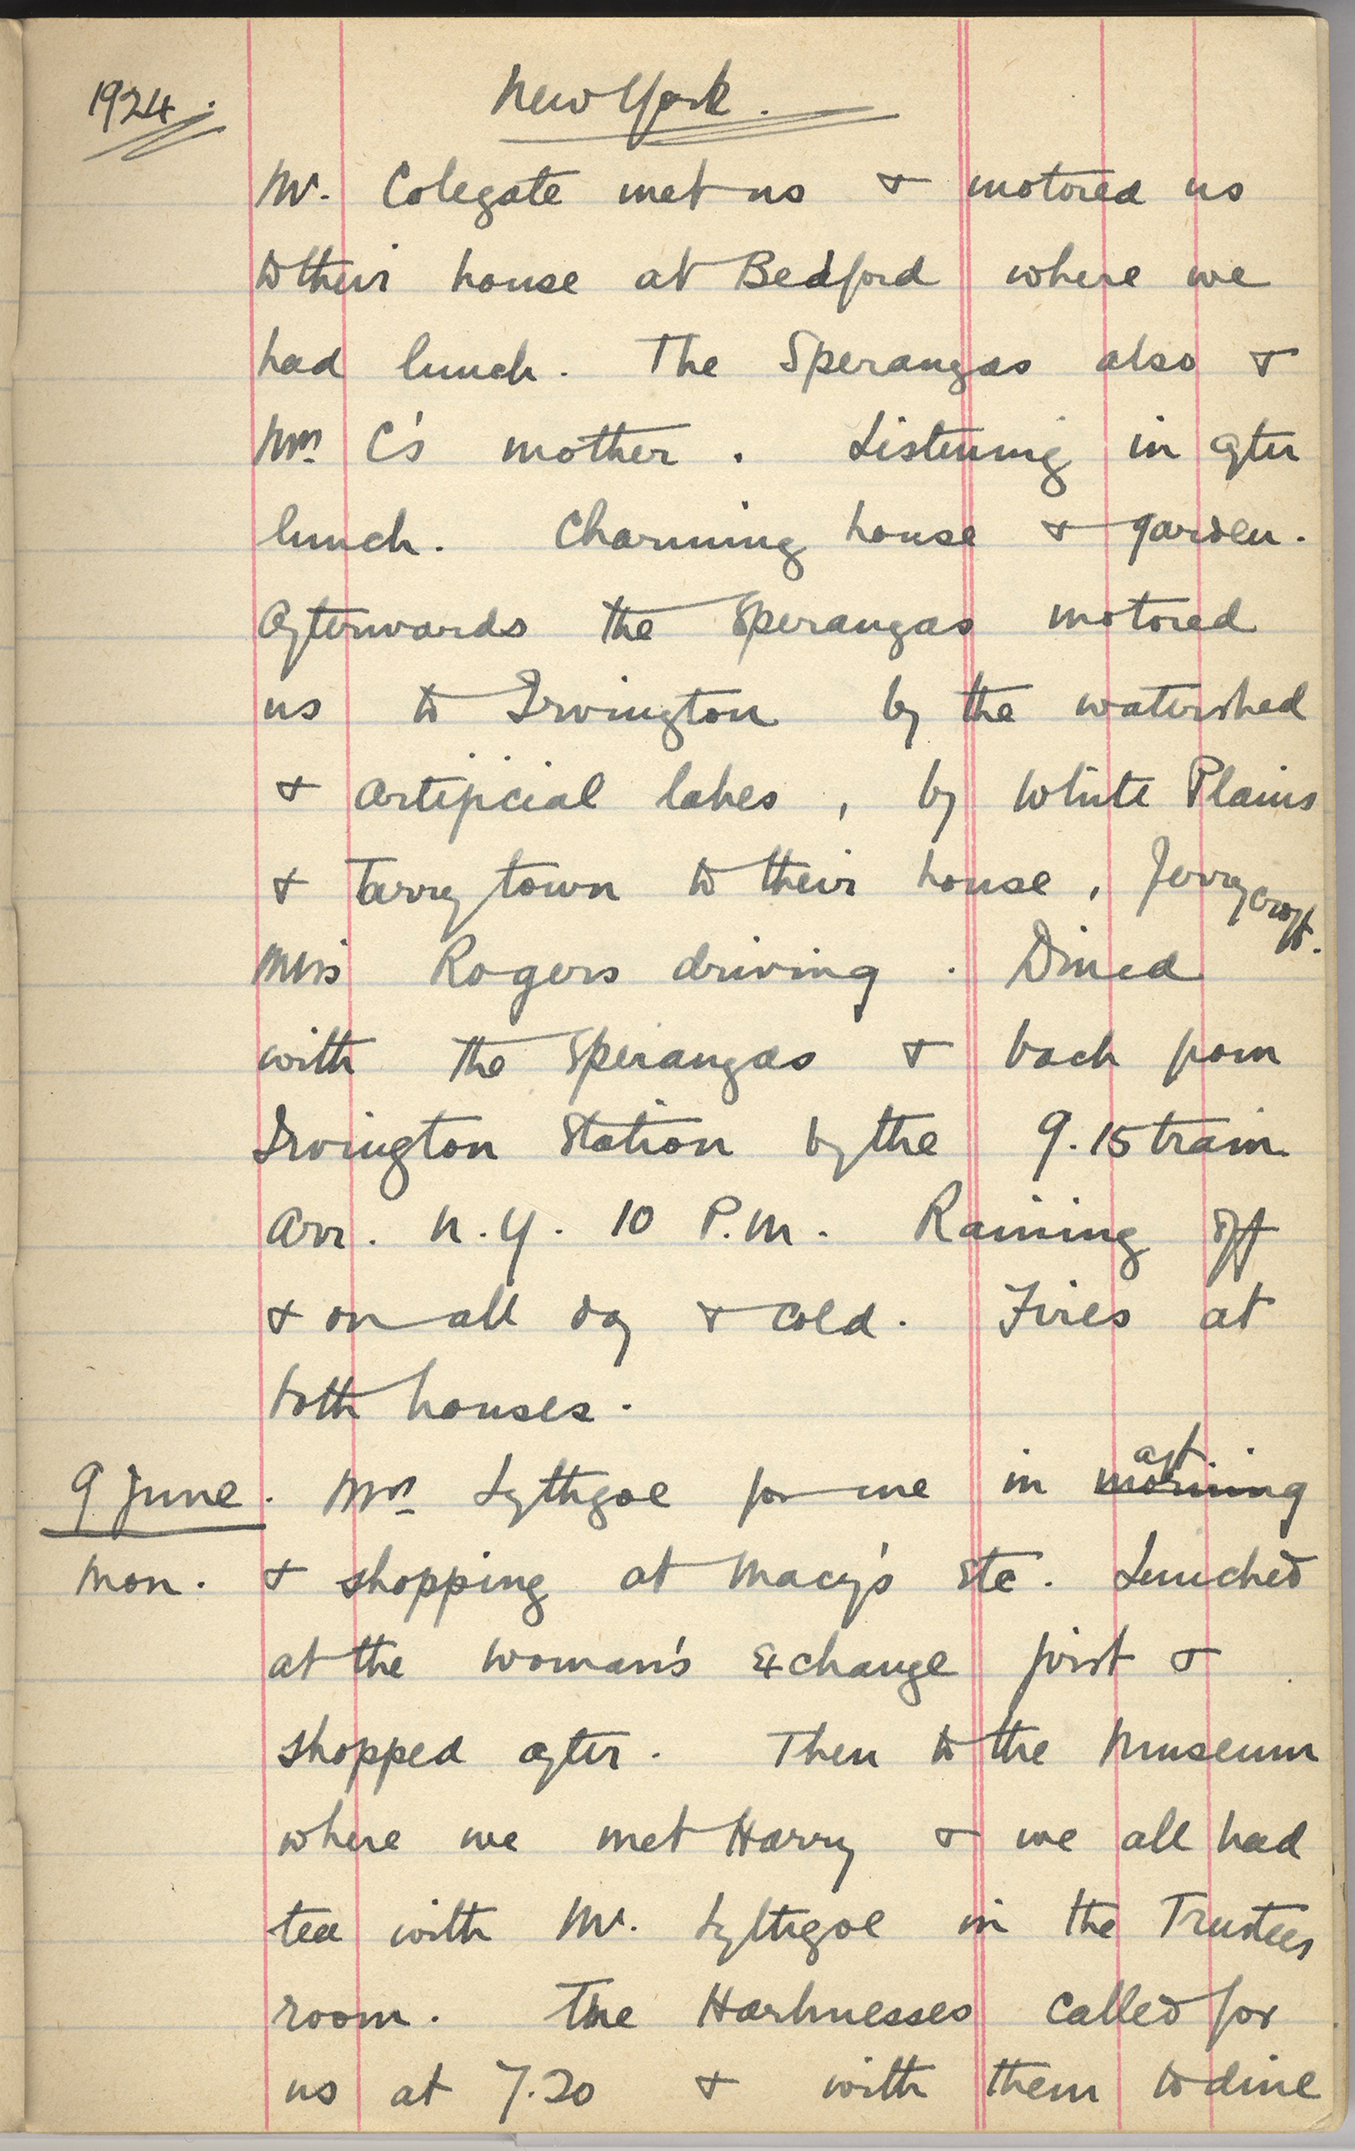 1924. New York.
Mr. Colegate met us & motored us
to their house at Bedford where we
had lunch. The Sperangas also &
Mrs. C's mother. Listening in after
lunch. Charming house & garden.
Afterwards the Sperangas motored
us to Irvington by the watershed
& artificial lakes, by White Plains
& Tarrytown to their house, Jerrycroft.
Miss Rogers driving. Dined
with the Sperangas & back from
Irvington Station by the 9.15 train
Arr. N.Y. 10 P.M. Raining off
& on all day & cold. Fires at
both houses.
aft
9 June. Mrs Lythgoe for me in morning
Mon. & shopping at Macy's etc. Lunched
at the Woman's Exchange first &
shopped after. Then to the Museum
where we met Harry & we all had
tea with Mr. Lythgoe in the Trustees
room. The Harknesses called for
us at 7.20 & with them to dine